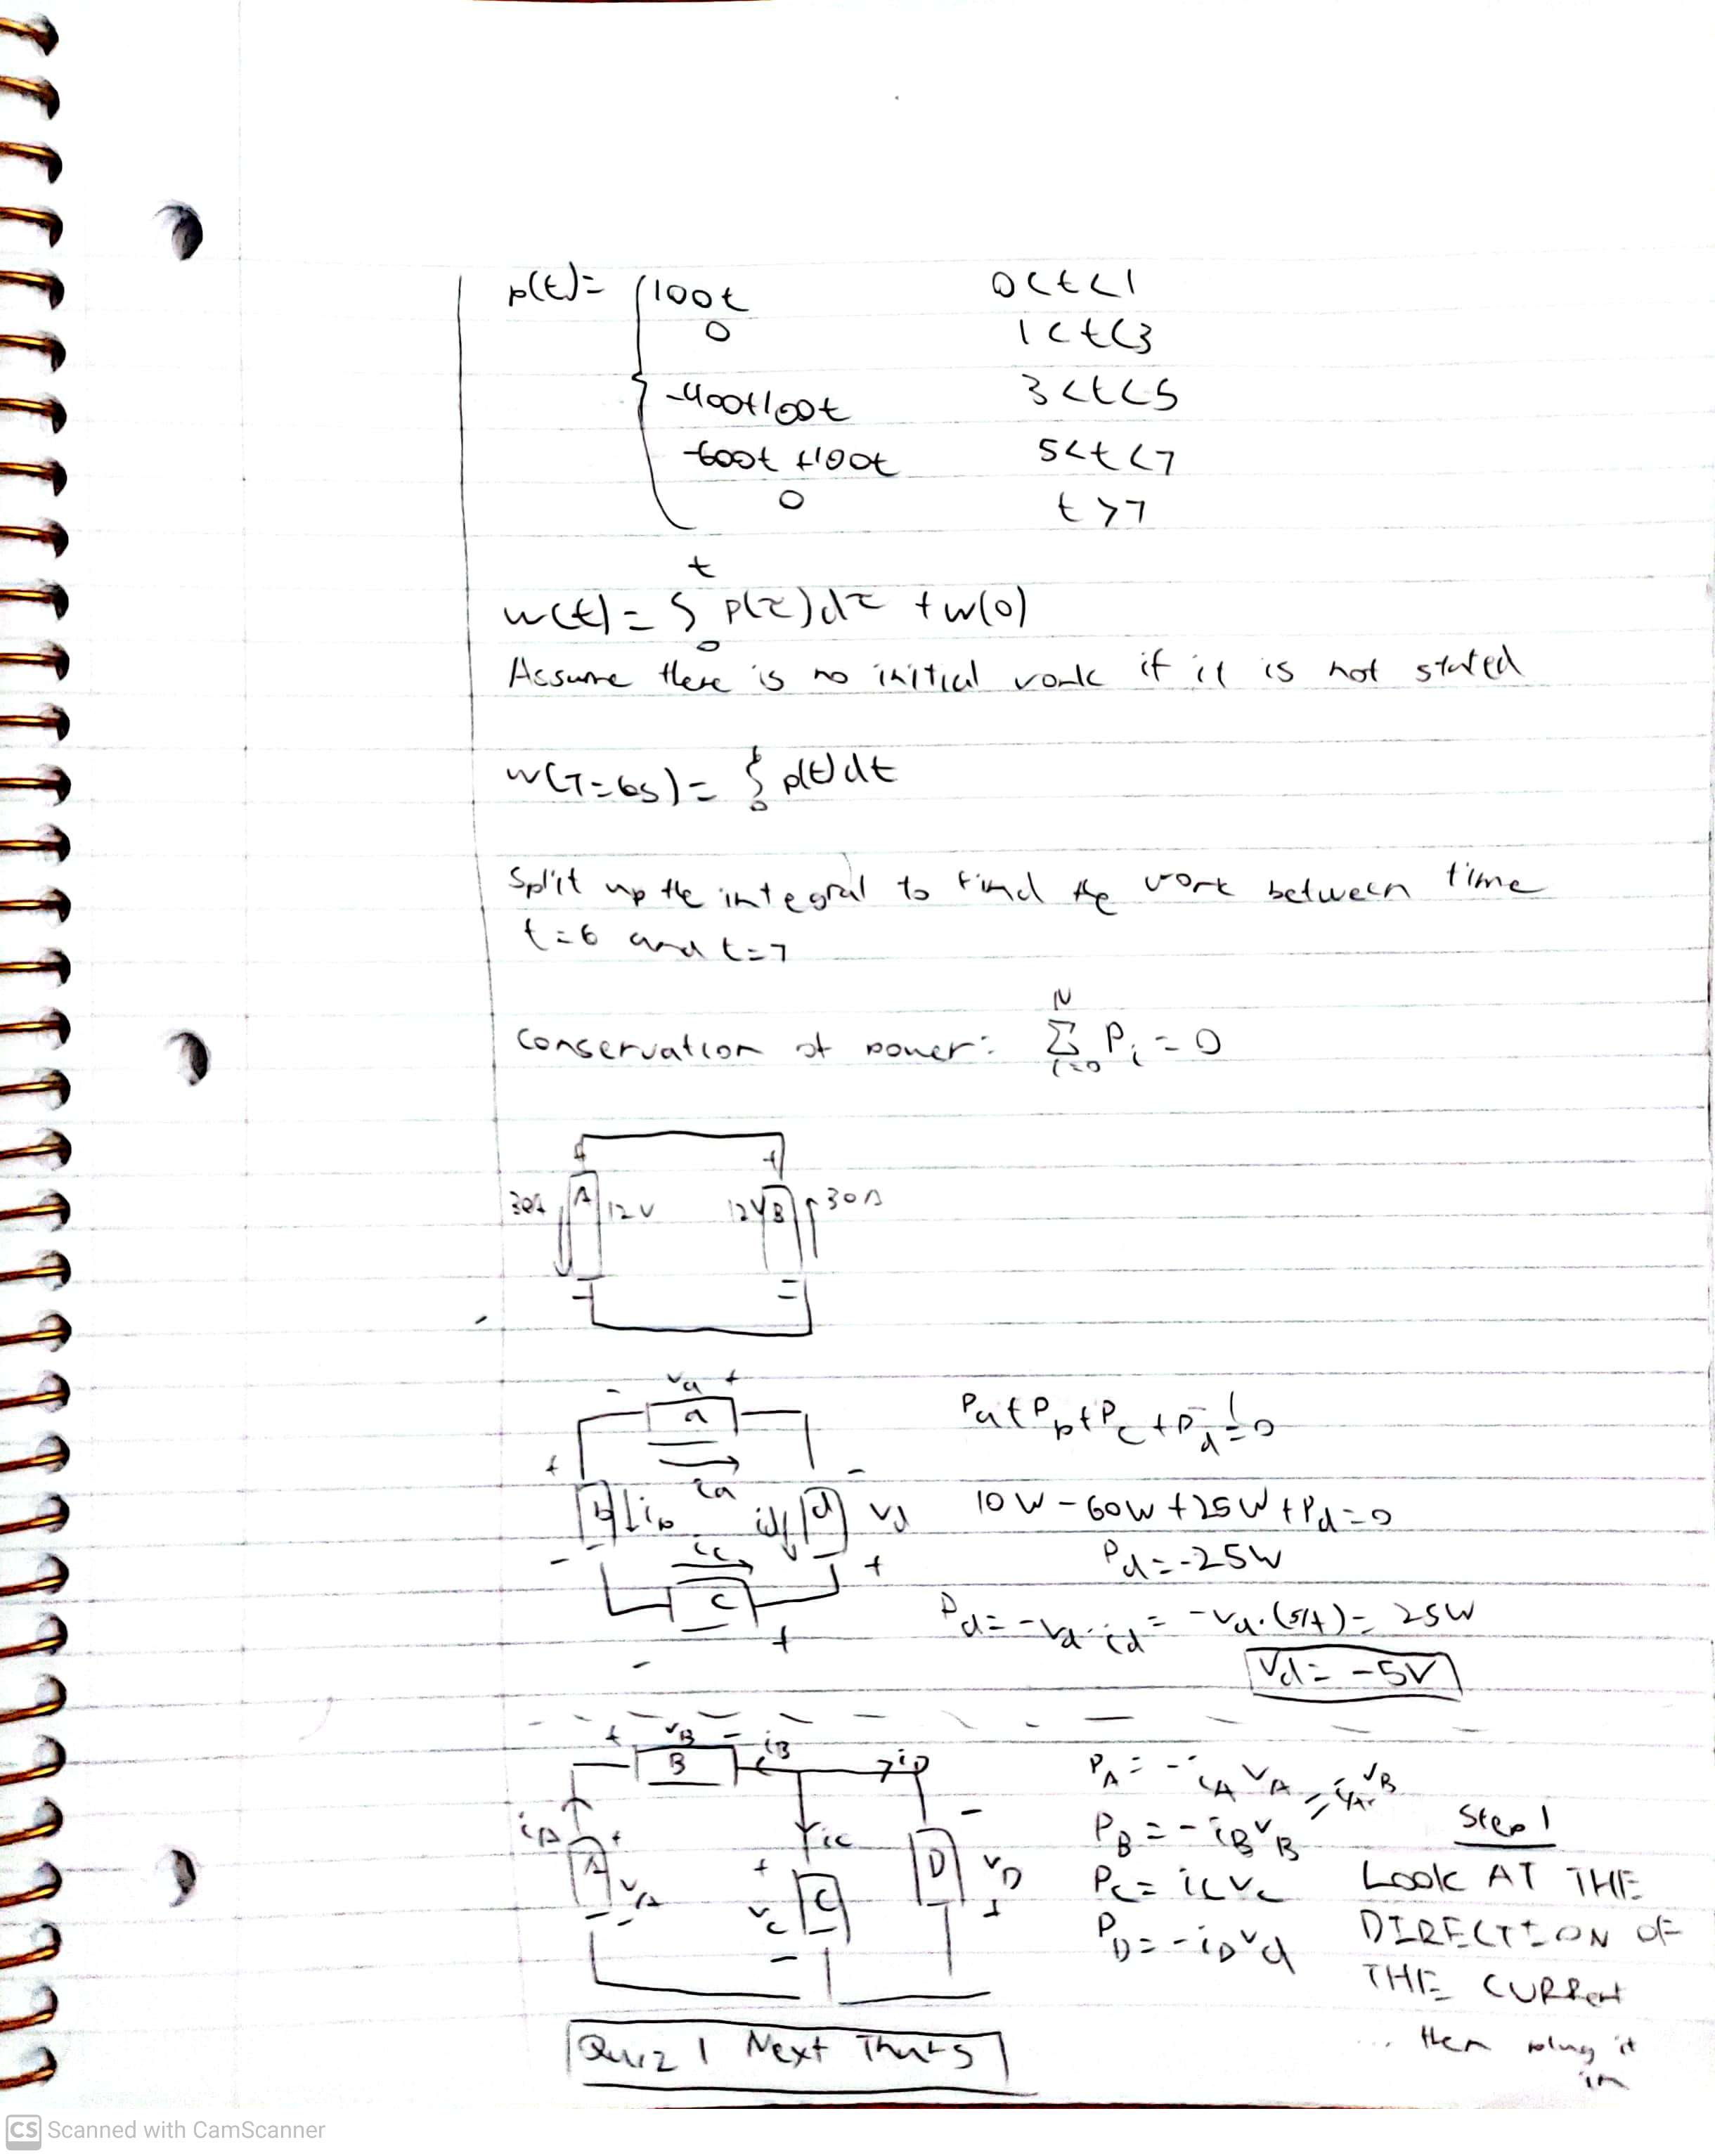 p(t)= { 100t 0<t<1
0 1<t<3
-400+100t 3<t<5
-600t +100t 5<t<7
0 t>7
w(t) = ∫₀ᵗ p(τ)dτ + w(0)
Assume there is no initial work if it is not stated
w(T=6s) = ∫₀ p(t)dt
Split up the integral to find the work between time
t=6 and t=7
Conservation of power: Σ_{i=0}^{N} P_i = 0
+ +
30A A 12V 12V B 30A
- -
- Va +
a
ia
Pa+Pb+Pc+Pd=0
+ b ib - id d - Vd +
10W - 60W + 25W + Pd=0
Pd=-25W
ic
- c +
Pd= -Vd·id = -Vd·(5A) = 25W
Vd= -5V
+ VB - iB
B iD
iA A + VA -
iC + C VC -
- D VD +
PA = -iA VA
PB = -iB VB
PC = iC VC
PD = -iD Vd
Step 1
LOOK AT THE
DIRECTION OF
THE CURRent
... then plug it
in
Quiz 1 Next Thurs
CS Scanned with CamScanner